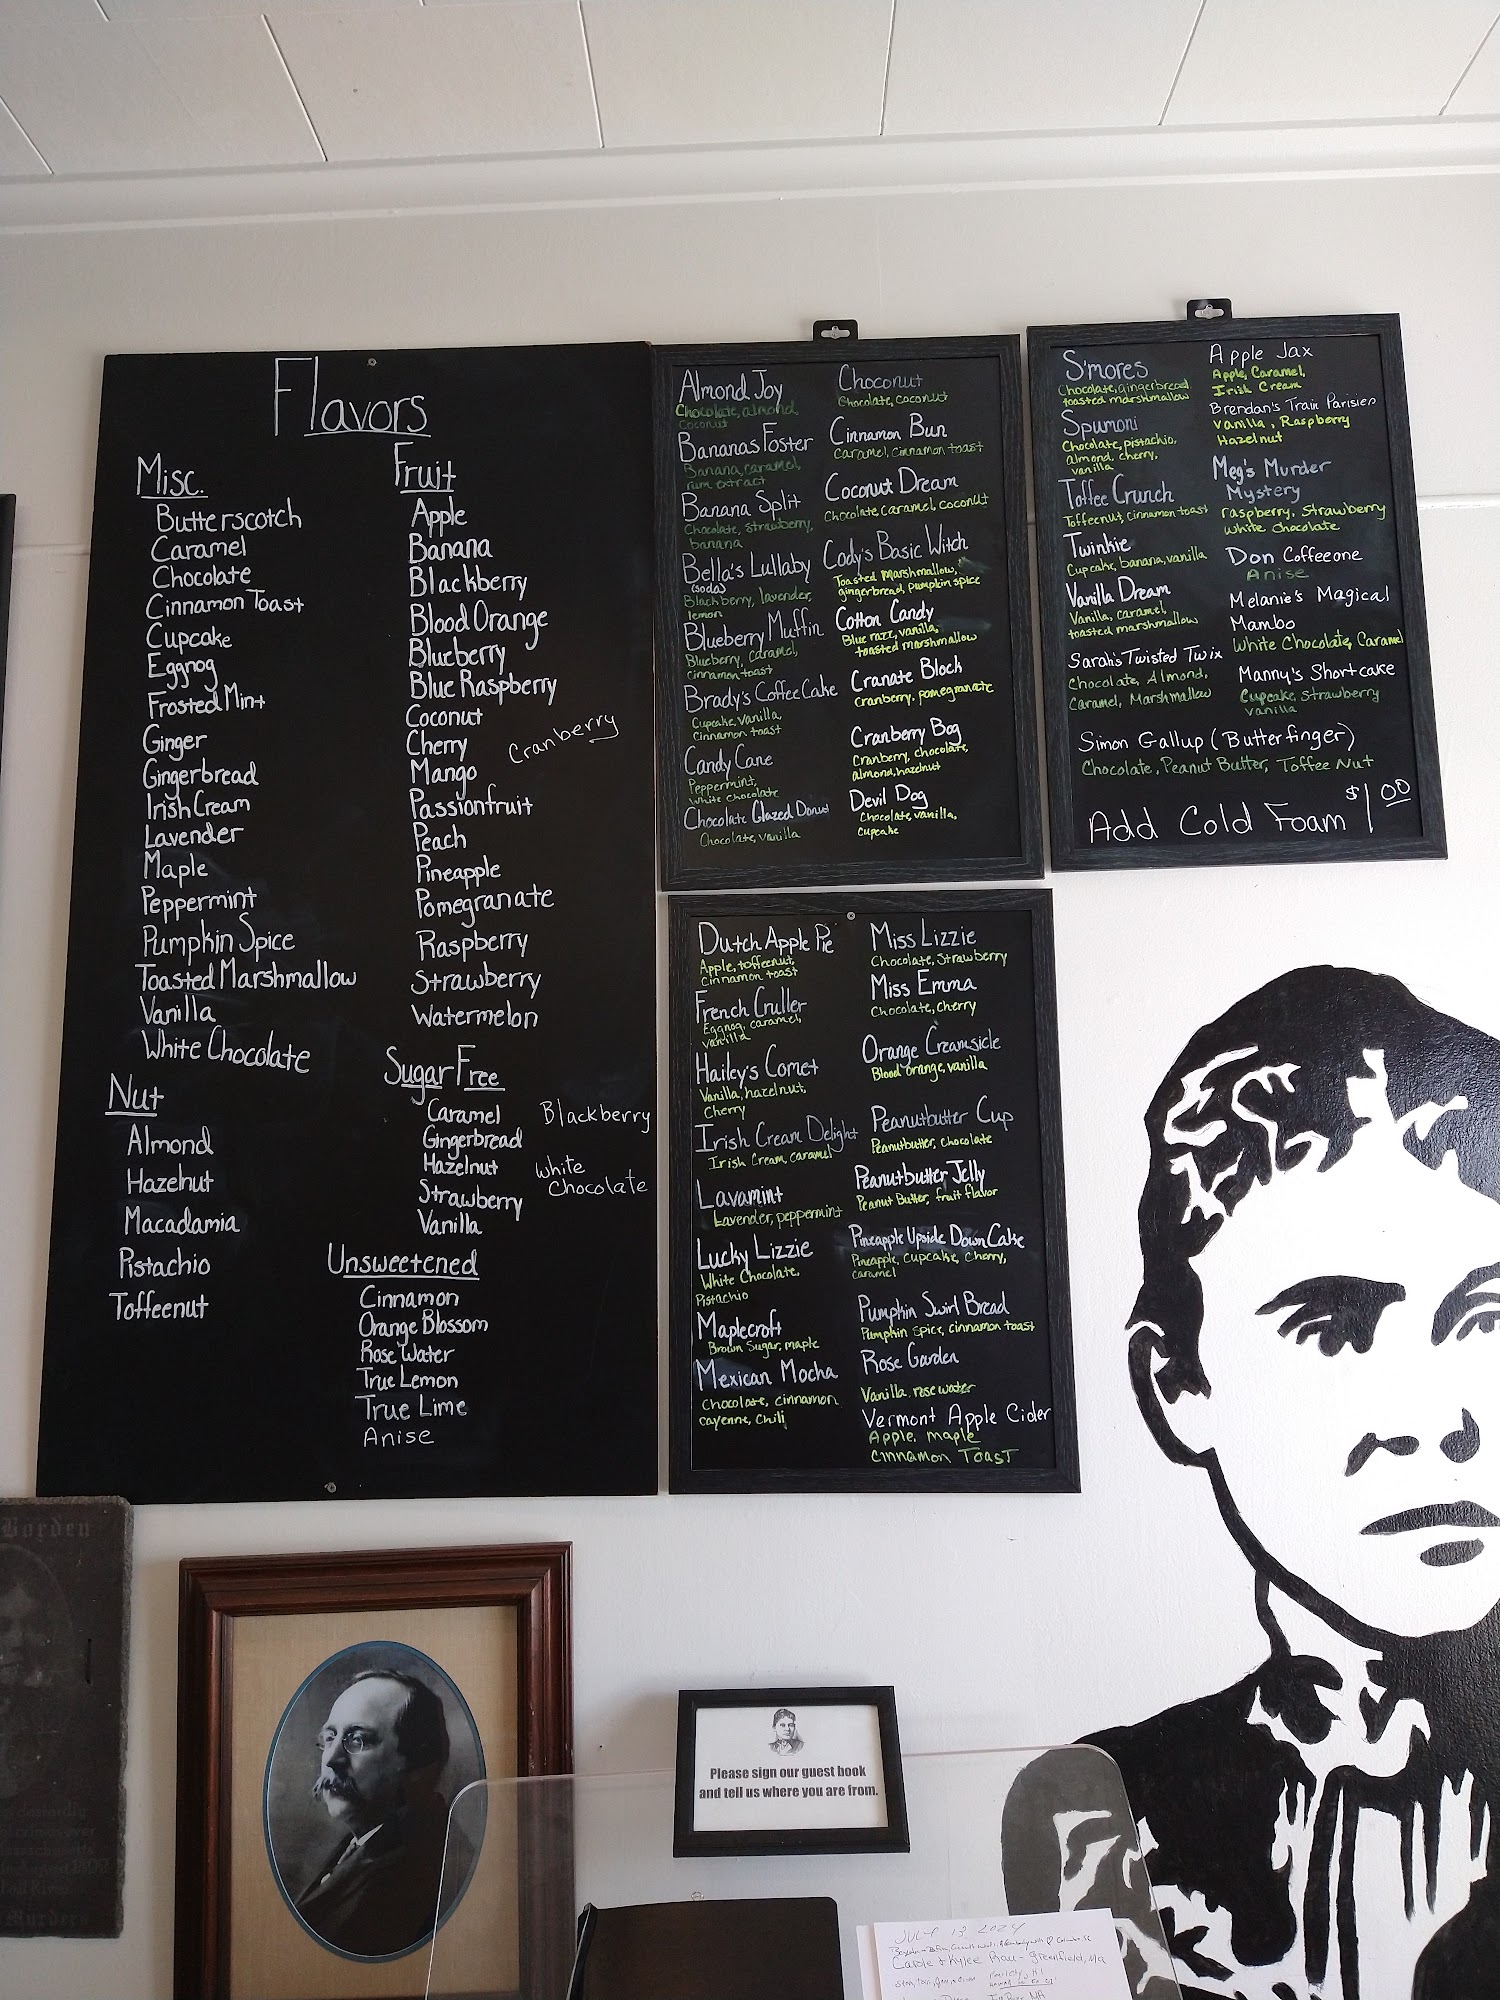 Flavors
Misc.
Butterscotch
Caramel
Chocolate
Cinnamon Toast
Cupcake
Eggnog
Frosted Mint
Ginger
Gingerbread
Irish Cream
Lavender
Maple
Peppermint
Pumpkin Spice
Toasted Marshmallow
Vanilla
White Chocolate
Nut
Almond
Hazelnut
Macadamia
Pistachio
Toffeenut
Fruit
Apple
Banana
Blackberry
Blood Orange
Blueberry
Blue Raspberry
Coconut
Cherry
Cranberry
Mango
Passionfruit
Peach
Pineapple
Pomegranate
Raspberry
Strawberry
Watermelon
Sugar Free
Caramel
Gingerbread
Hazelnut
Strawberry
Vanilla
Blackberry
White
Chocolate
Unsweetened
Cinnamon
Orange Blossom
Rose Water
True Lemon
True Lime
Anise
Almond Joy
Chocolate, almond,
Coconut
Bananas Foster
Banana, caramel,
rum extract
Banana Split
Chocolate, strawberry,
banana
Bella's Lullaby
(soda)
Blackberry, lavender,
lemon
Blueberry Muffin
Blueberry, caramel,
cinnamon toast
Brady's Coffee Cake
Cupcake, vanilla,
cinnamon toast
Candy Cane
Peppermint,
white chocolate
Chocolate Glazed Donut
Chocolate, vanilla
Choconut
Chocolate, coconut
Cinnamon Bun
Caramel, cinnamon toast
Coconut Dream
Chocolate, caramel, coconut
Cody's Basic Witch
Toasted marshmallow,
gingerbread, pumpkin spice
Cotton Candy
Blue razz, vanilla,
toasted marshmallow
Cranate Block
Cranberry, pomegranate
Cranberry Bog
Cranberry, chocolate,
almond, hazelnut
Devil Dog
Chocolate, vanilla,
cupcake
S'mores
Chocolate, gingerbread
toasted marshmallow
Spumoni
Chocolate, pistachio,
almond, cherry,
vanilla
Toffee Crunch
Toffeenut, cinnamon toast
Twinkie
Cupcake, banana, vanilla
Vanilla Dream
Vanilla, caramel,
toasted marshmallow
Sarah's Twisted Twix
Chocolate, Almond,
Caramel, Marshmallow
Apple Jax
Apple, Caramel,
Irish Cream
Brendan's Train Parisien
Vanilla, Raspberry
Hazelnut
Meg's Murder
Mystery
raspberry, Strawberry
White Chocolate
Don Coffeeone
Anise
Melanie's Magical
Mambo
White Chocolate, Caramel
Manny's Shortcake
Cupcake, Strawberry
Vanilla
Simon Gallup (Butterfinger)
Chocolate, Peanut Butter, Toffee Nut
Add Cold Foam $1.00
Dutch Apple Pie
Apple, toffeenut,
cinnamon toast
French Cruller
Eggnog, caramel,
vanilla
Hailey's Comet
Vanilla, hazelnut,
Cherry
Irish Cream Delight
Irish Cream, caramel
Lavamint
Lavender, peppermint
Lucky Lizzie
White Chocolate,
Pistachio
Maplecroft
Brown Sugar, maple
Mexican Mocha
Chocolate, cinnamon
cayenne, chili
Miss Lizzie
Chocolate, strawberry
Miss Emma
Chocolate, cherry
Orange Creamsicle
Blood orange, vanilla
Peanutbutter Cup
Peanutbutter, chocolate
Peanutbutter Jelly
Peanut Butter, fruit flavor
Pineapple Upside Down Cake
Pineapple, cupcake, cherry,
caramel
Pumpkin Swirl Bread
Pumpkin spice, cinnamon toast
Rose Garden
Vanilla, rose water
Vermont Apple Cider
Apple, maple
Cinnamon Toast
Borden
Murders
Please sign our guest book
and tell us where you are from.
JULY 13 2024
Greenfield, MA